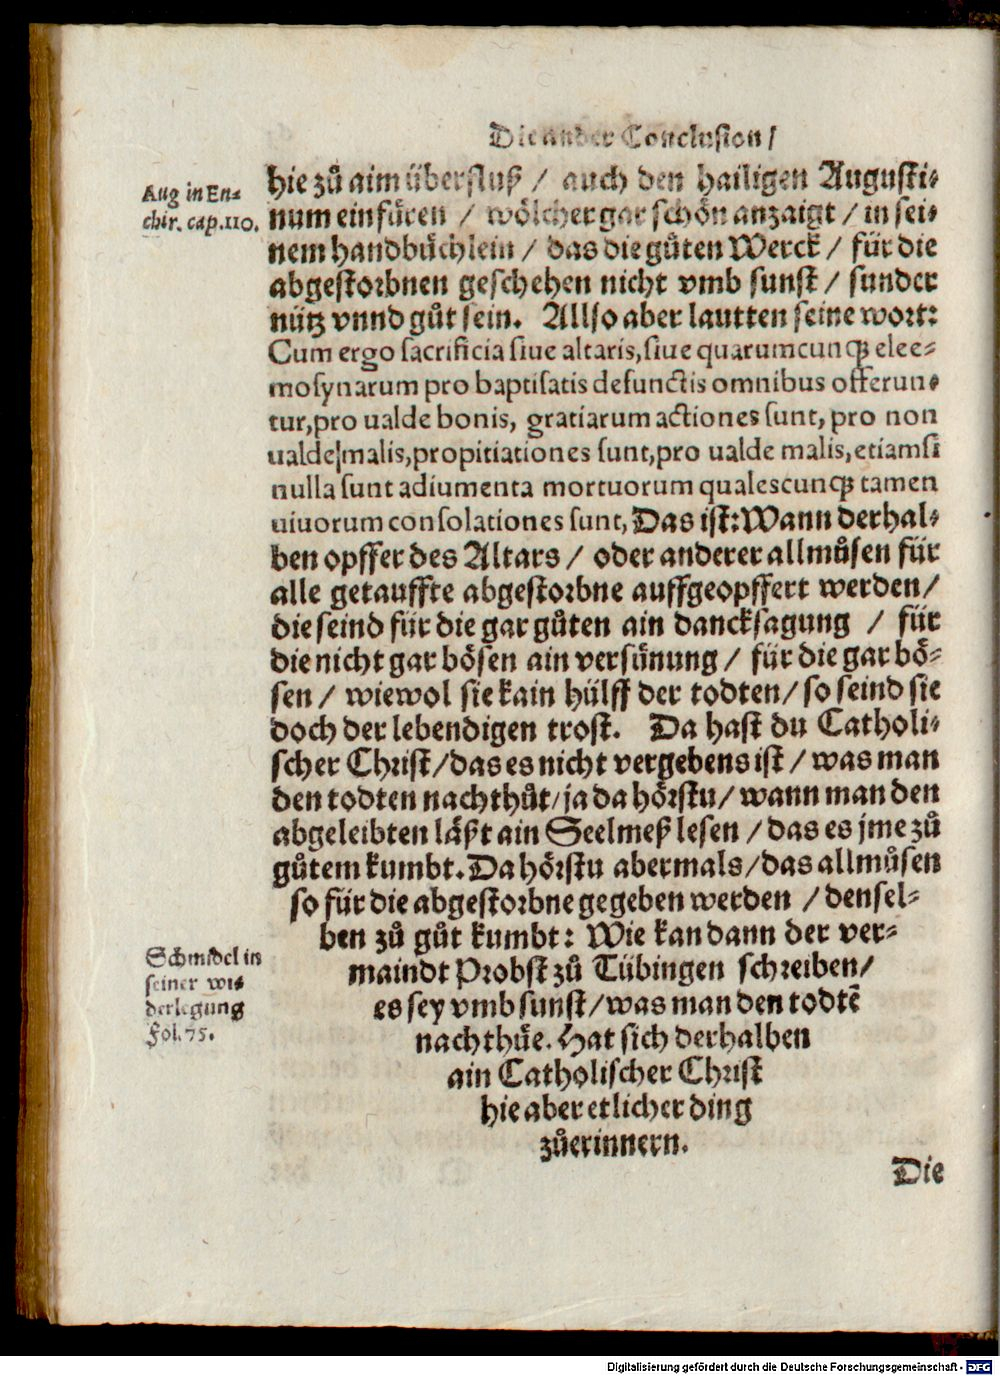 Die ander Conclusion /
Aug in En⸗
chir. cap. 110.
hie zů aim überfluß / auch den hailigen Augusti⸗
num einfüren / wölcher gar schön anzaigt / in sei⸗
nem handbüchlein / das die gůten Werck / für die
abgestorbnen geschehen nicht vmb sunst / sunder
nütz vnnd gůt sein. Allso aber lautten seine wort:
Cum ergo sacrificia siue altaris, siue quarumcunq; elee⸗
mosynarum pro baptisatis defunctis omnibus offerun⸗
tur, pro ualde bonis, gratiarum actiones sunt, pro non
ualde malis, propitiationes sunt, pro ualde malis, etiamsi
nulla sunt adiumenta mortuorum qualescunq; tamen
uiuorum consolationes sunt, Das ist: Wann derhal⸗
ben opffer des Altars / oder anderer allmůsen für
alle getauffte abgestorbne auffgeopffert werden /
die seind für die gar gůten ain dancksagung / für
die nicht gar bösen ain versünung / für die gar bö⸗
sen / wiewol sie kain hülff der todten / so seind sie
doch der lebendigen trost. Da hast du Catholi⸗
scher Christ / das es nicht vergebens ist / was man
den todten nachthůt / ja da hörstu / wann man den
abgeleibten läßt ain Seelmeß lesen / das es jme zů
gůtem kumbt. Da hörstu abermals / das allmůsen
so für die abgestorbne gegeben werden / densel⸗
ben zů gůt kumbt: Wie kan dann der ver⸗
maindt Probst zů Tübingen schreiben /
es sey vmb sunst / was man den todtē
nachthüe. Hat sich derhalben
ain Catholischer Christ
hie aber etlicher ding
zůerinnern.
Schmidel in
seiner wi⸗
derlegung
Fol. 75.
Die
Digitalisierung gefördert durch die Deutsche Forschungsgemeinschaft - DFG